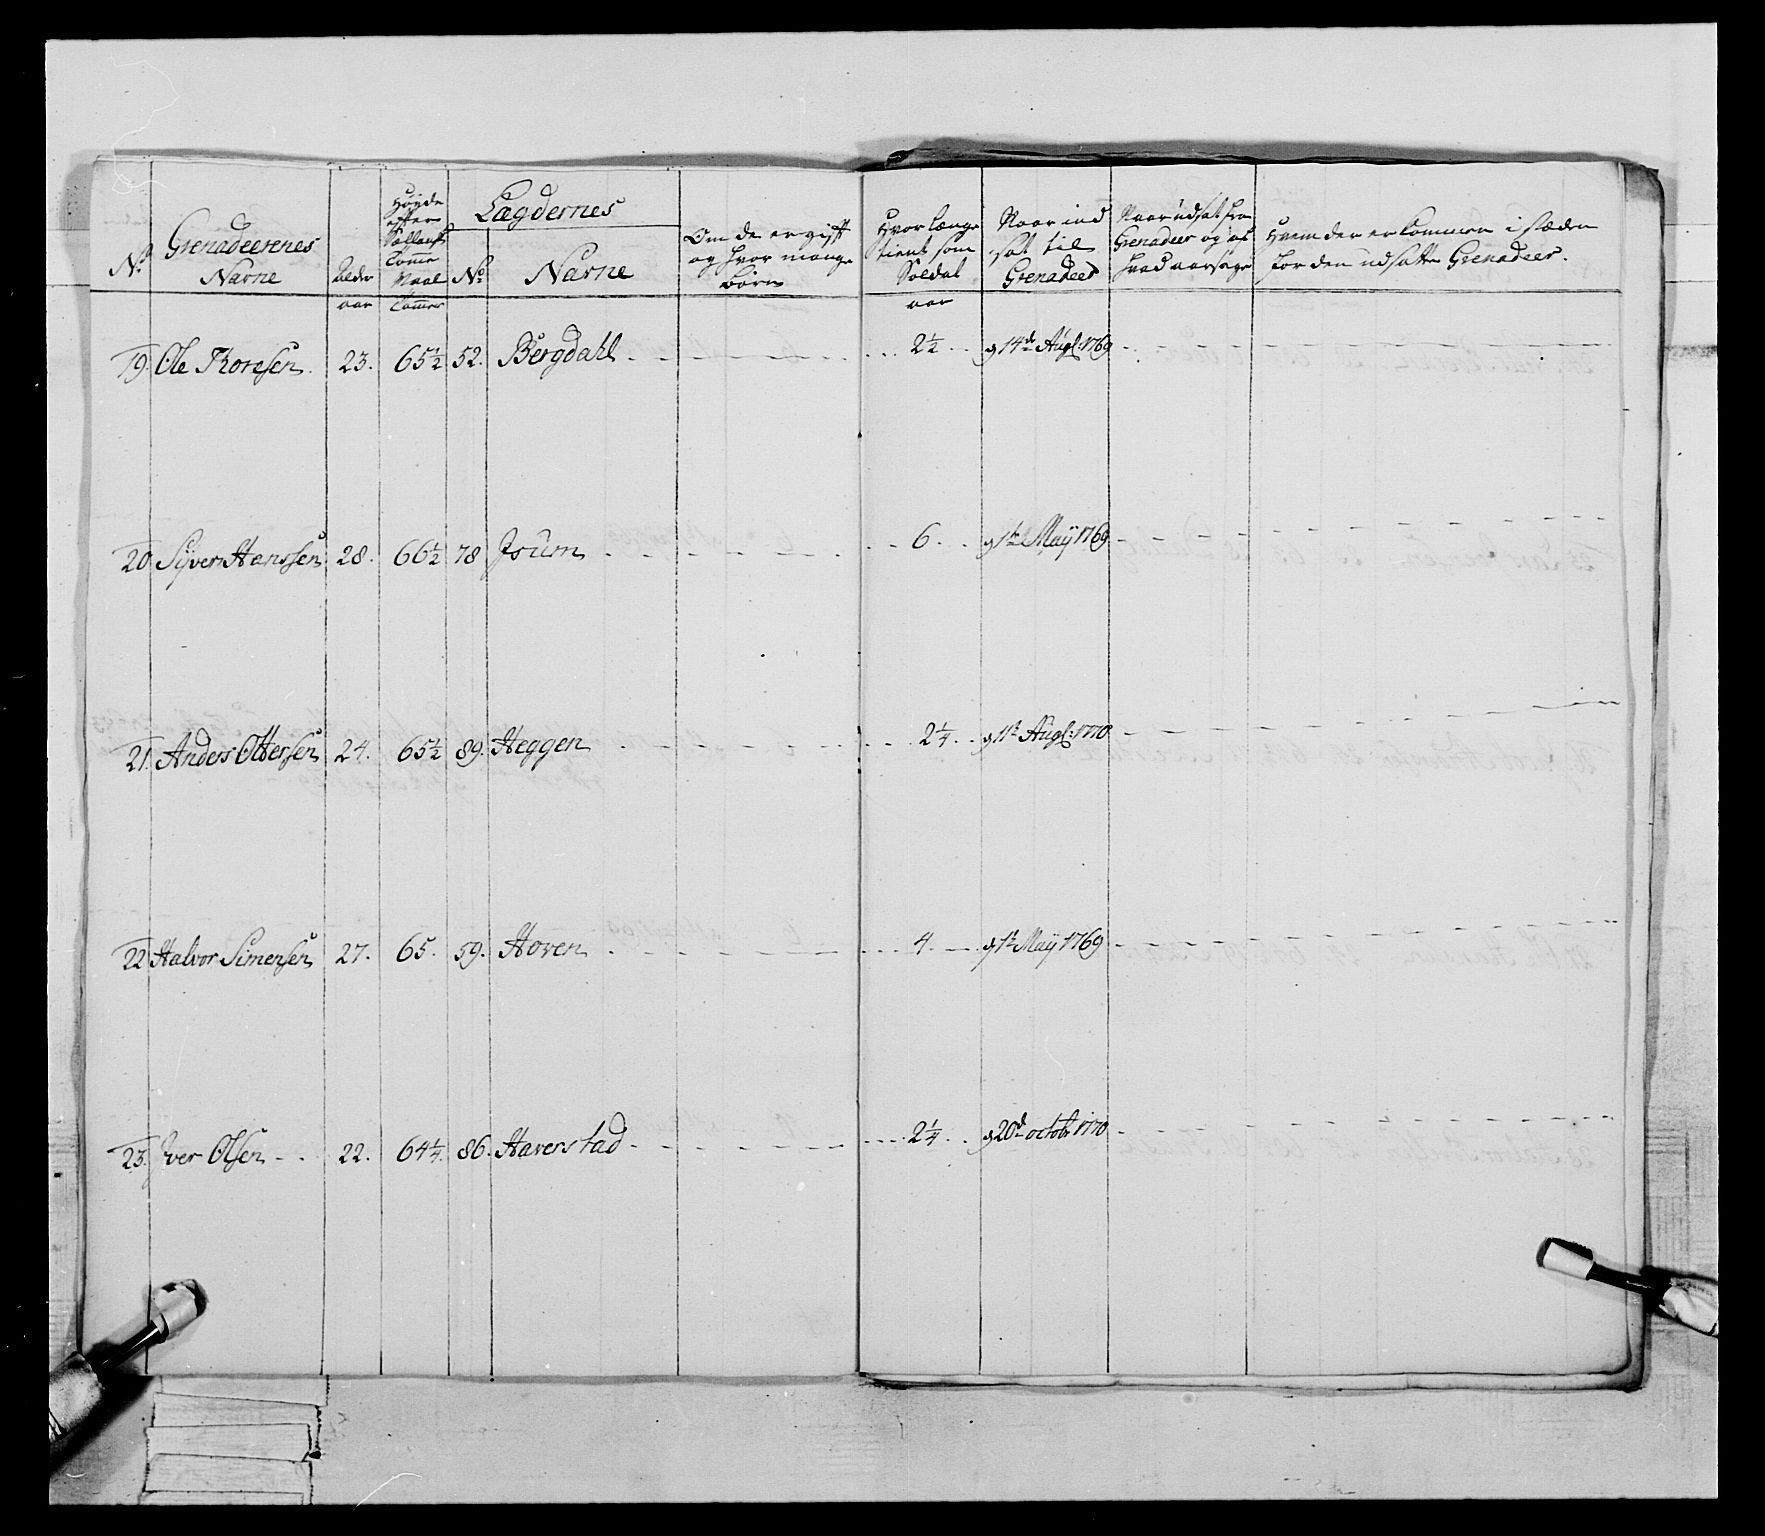 No. Grenadeerenes Nafne
Alder aar
Høyde efter Siællansk Tomme Maal Tommer
Lægdernes
No. Nafne
Om de er gift og hvor mange børn
Hvor længe tient som Soldat aar
Naar ind sat til Grenadeer
Naar udsat fra Grenadeer og af hvad aarsage
Hvem der er kommen i stæden for den udsatte Grenadeer.
19. Ole Thoresen. 23. 65½ 52. Bergdahl 2½ d 14de Augl: 1769
20 Syver Hanssen 28. 66½ 78 Isum 6. d 1te Maÿ 1769
21. Anders Ottersen 24. 65½ 89. Heggen 2¼ d 11te Augl: 1770
22 Halvor Simensen 27. 65. 59. Hoven 4. d 1te Maÿ 1769
23. Iver Olsen 22. 64¼ 86. Haverstad 2¼ d 20de octobr 1770